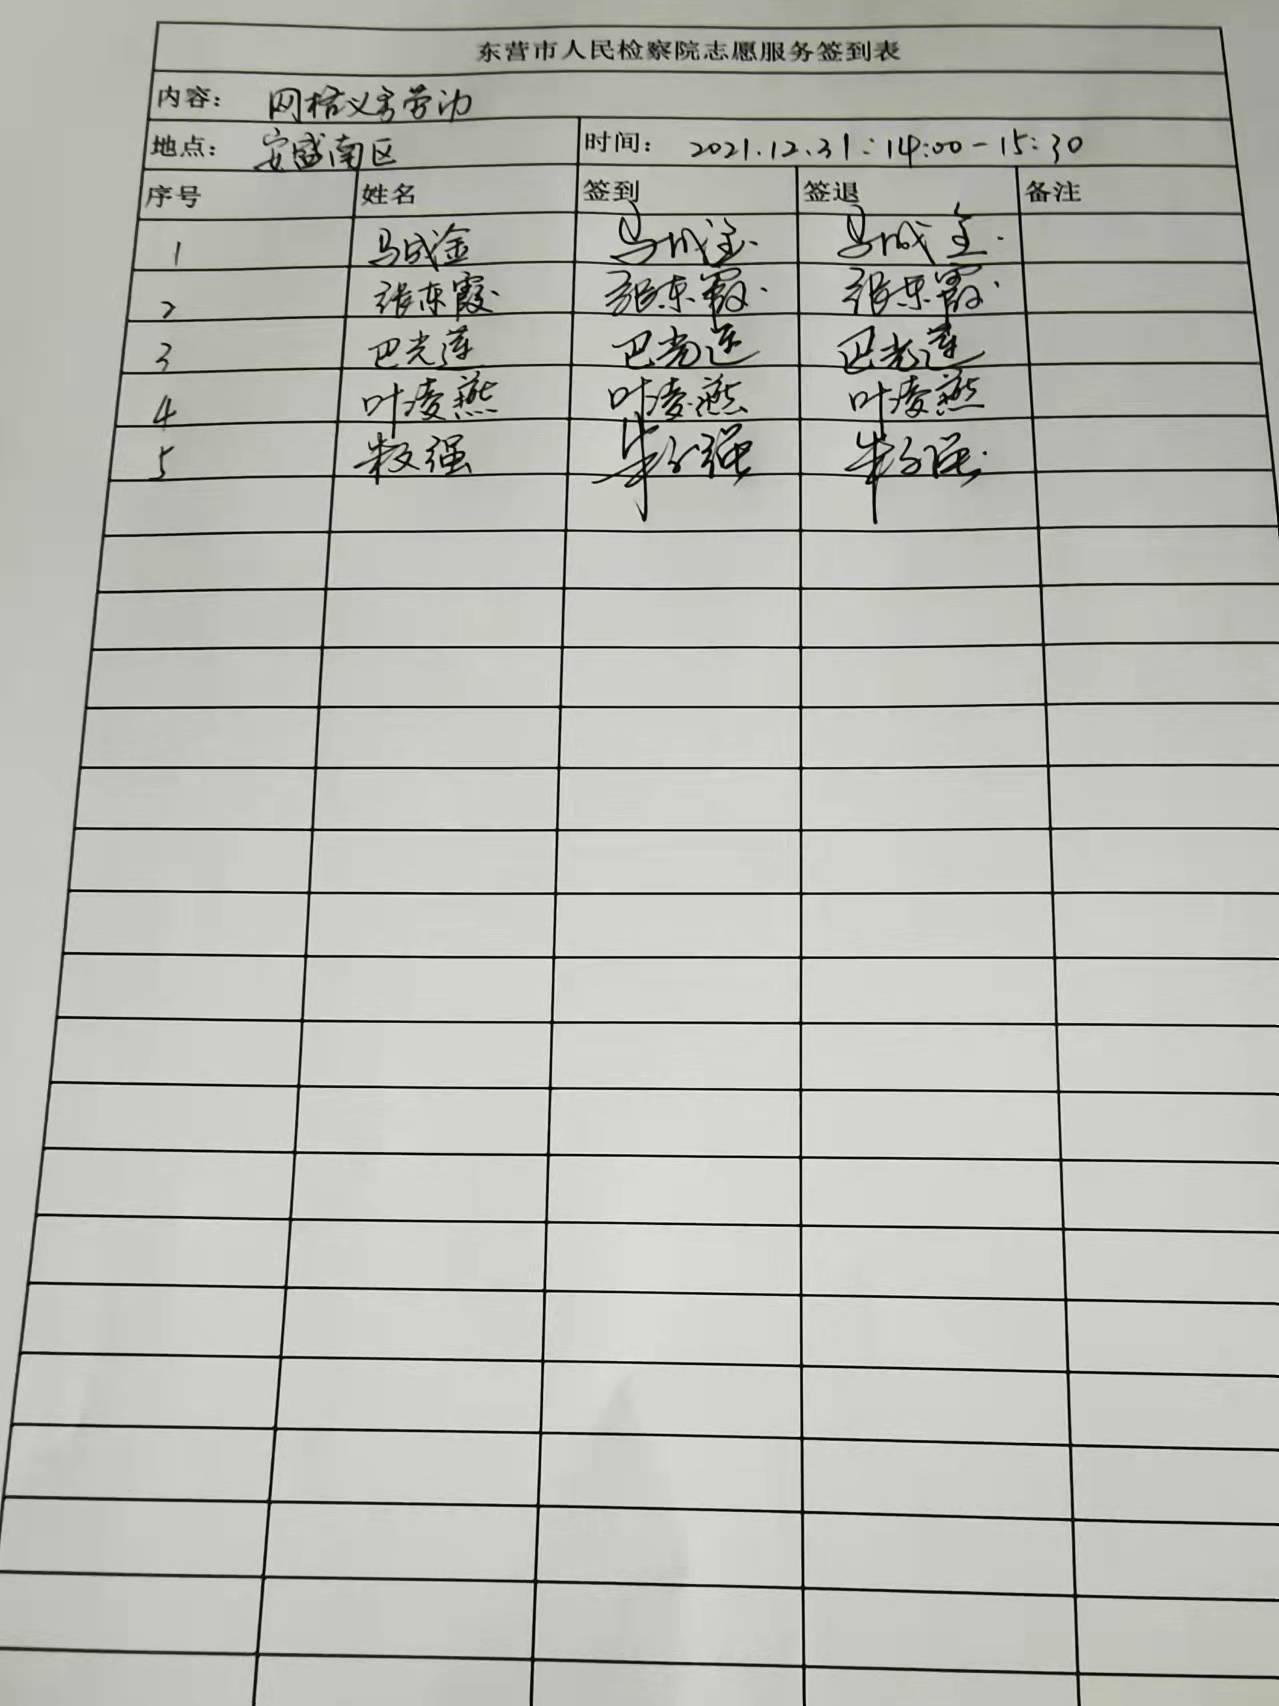 东营市人民检察院志愿服务签到表
内容： 网格义务劳动
地点： 安盛南区 时间： 2021.12.31：14:00-15:30
序号 姓名 签到 签退 备注
1 马成金 马成金 马成金
2 张东霞 张东霞 张东霞
3 巴光莲 巴光莲 巴光莲
4 叶凌燕 叶凌燕 叶凌燕
5 强 强 强